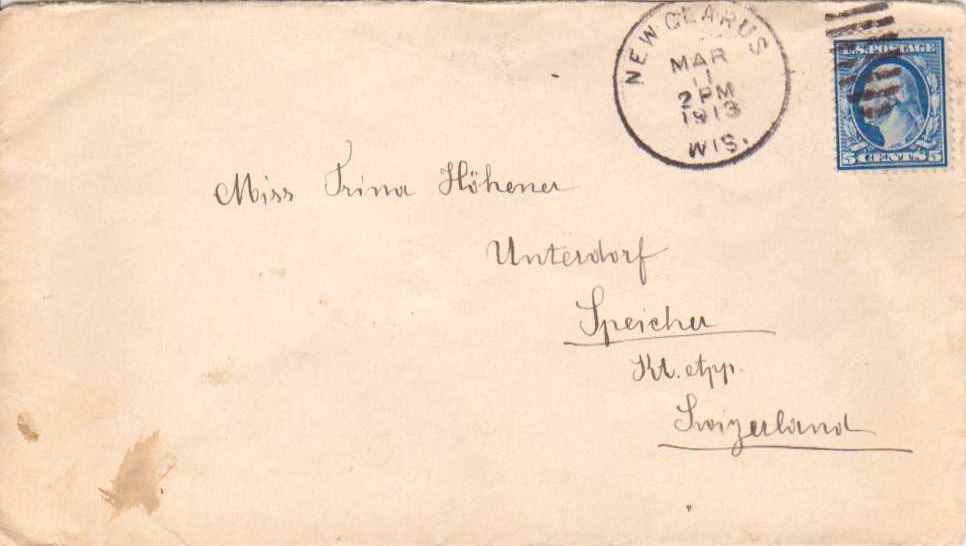 NEW GLARUS
MAR
11
2 PM
1913
WIS.
U.S. POSTAGE
5 CENTS 5
Miss Trina Höhener
Unterdorf
Speicher
Kt. App.
Swizerland